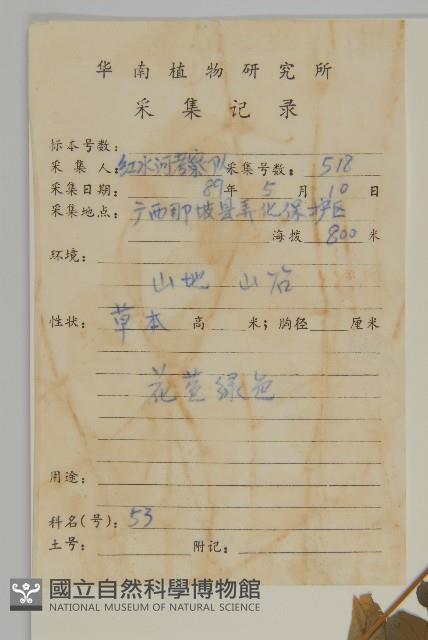 华南植物研究所
采集记录
标本号数：
采集人：红水河考察队 采集号数：518
采集日期：89年5月10日
采集地点：广西那坡县弄化保护区
海拨 800 米
环境：
山地 山谷
性状：草本 高 米；胸径 厘米
花萼绿色
用途：
科名(号)：53
土号： 附记：
國立自然科學博物館
NATIONAL MUSEUM OF NATURAL SCIENCE